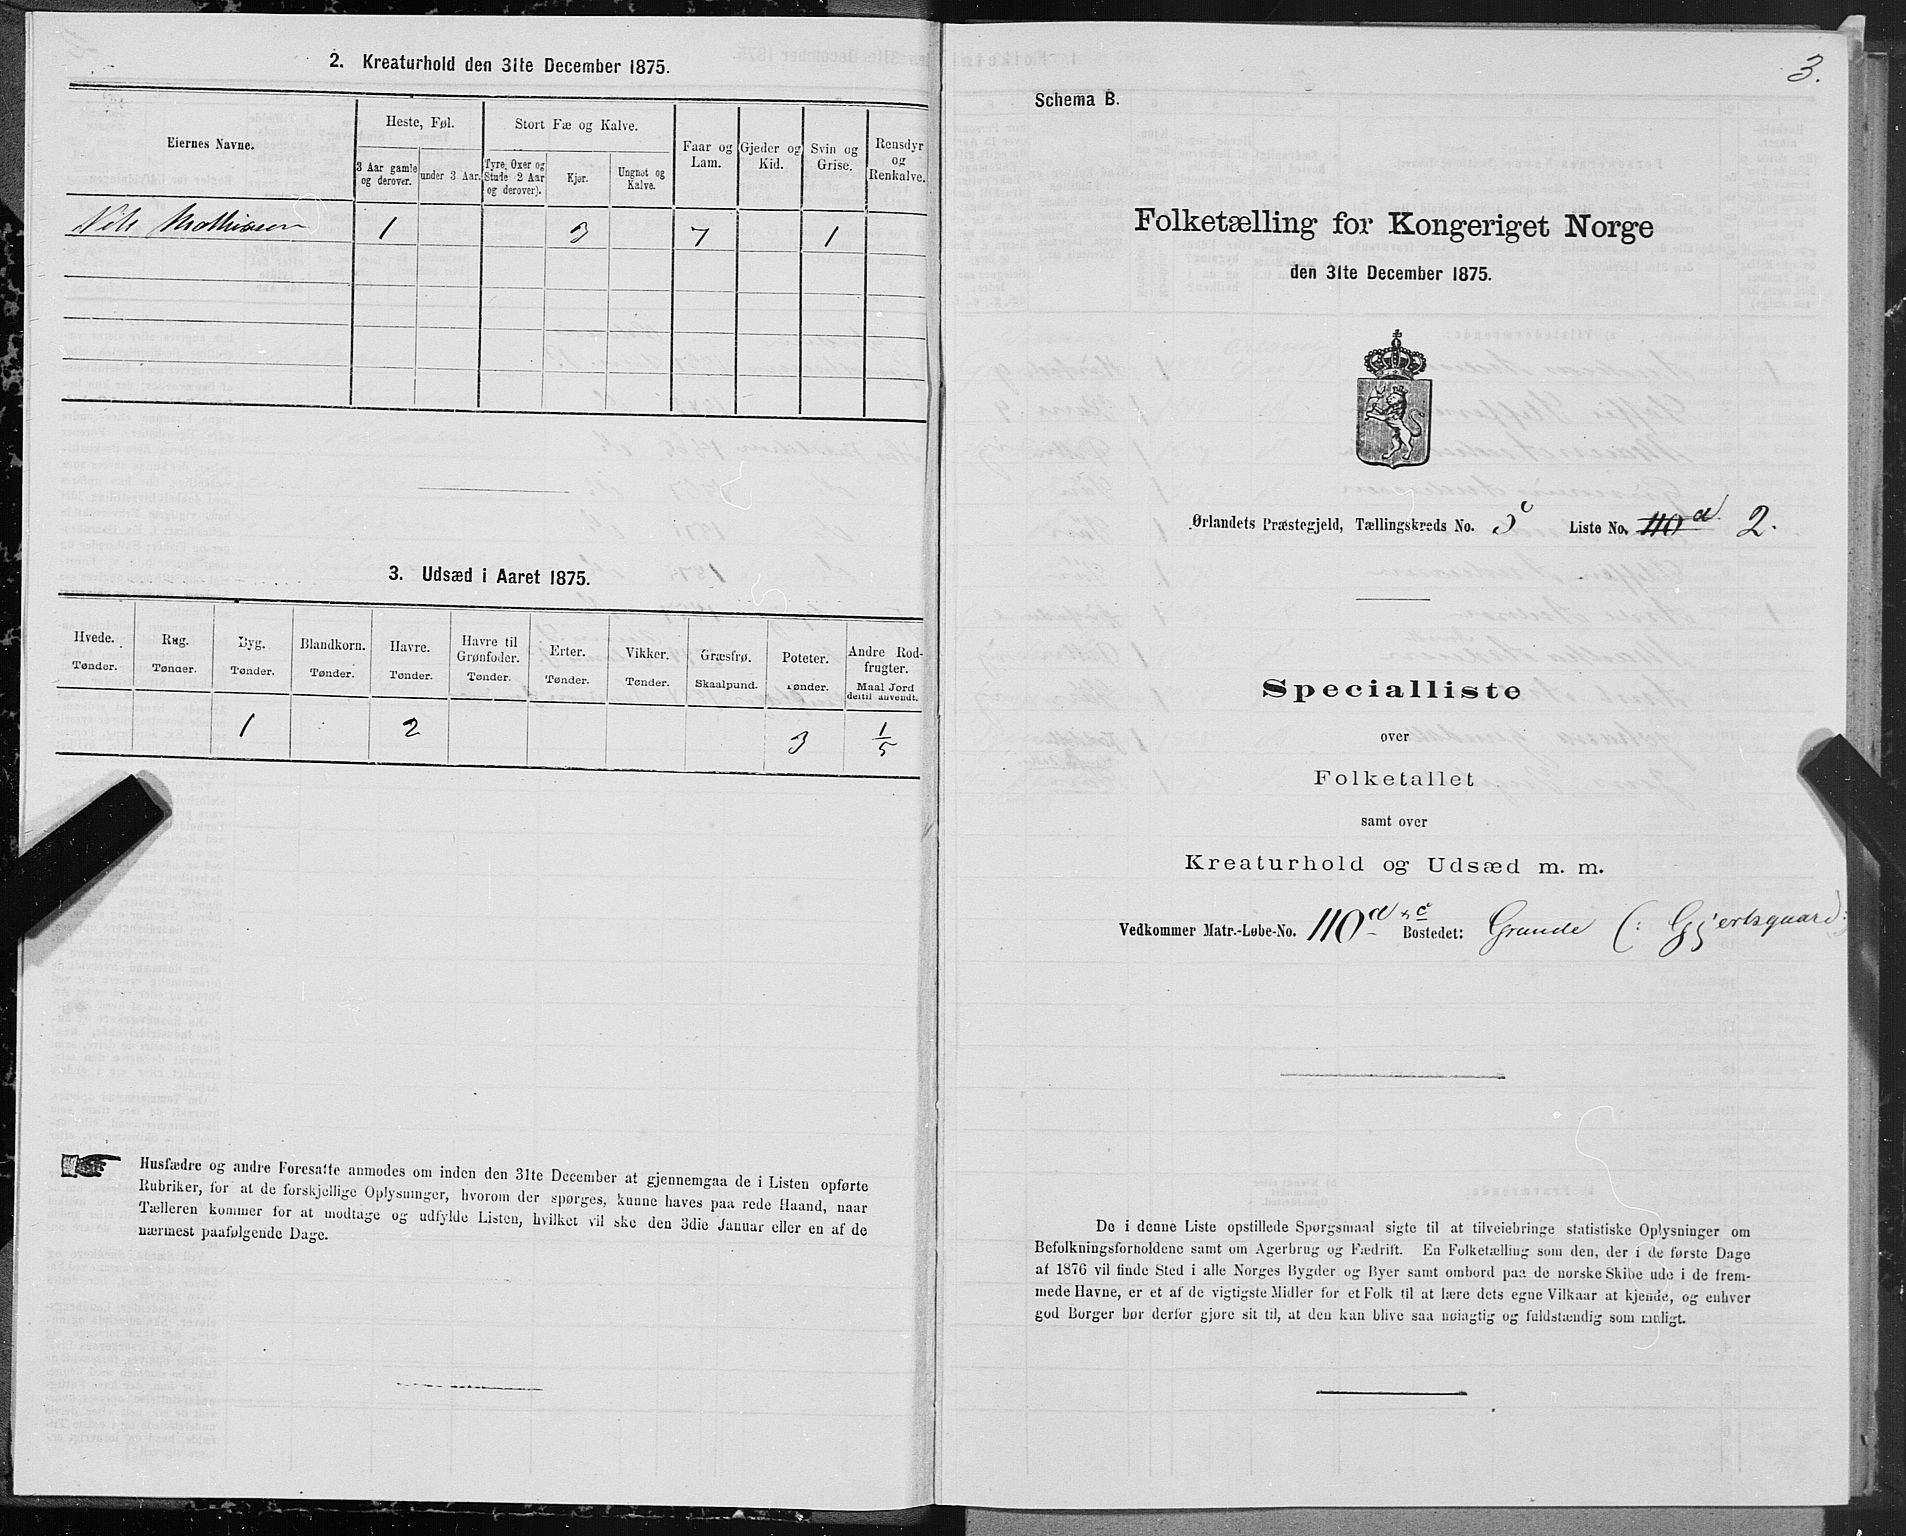 2. Kreaturhold den 31te December 1875.
Eiernes Navne.
Heste, Føl.
Stort Fæ og Kalve.
Faar og Lam.
Gjeder og Kid.
Svin og Grise.
Rensdyr og Renkalve.
3 Aar gamle og derover.
under 3 Aar.
Tyre, Oxer og Stude 2 Aar og derover).
Kjør.
Ungnøt og Kalve.
Nils Mathiasen 1 3 7 1
3. Udsæd i Aaret 1875.
Hvede. Tønder.
Rug. Tønder.
Byg. Tønder.
Blandkorn. Tønder.
Havre. Tønder.
Havre til Grønfoder. Tønder.
Erter. Tønder.
Vikker. Tønder.
Græsfrø. Skaalpund.
Poteter. Tønder.
Andre Rodfrugter. Maal Jord dertil anvendt.
1 2 3 1/5
Husfædre og andre Foresatte anmodes om inden den 31te December at gjennemgaa de i Listen opførte
Rubriker, for at de forskjellige Oplysninger, hvorom der spørges, kunne haves paa rede Haand, naar
Tælleren kommer for at modtage og udfylde Listen, hvilket vil ske den 3die Januar eller en af de
nærmest paafølgende Dage.
3.
Schema B.
Folketælling for Kongeriget Norge
den 31te December 1875.
Ørlandets Præstegjeld, Tællingskreds No. 3c Liste No. 110d 2.
Specialliste
over
Folketallet
samt over
Kreaturhold og Udsæd m. m.
Vedkommer Matr.-Løbe-No. 110 d + e Bostedet: Grande (: Gjertsgaard :)
De i denne Liste opstillede Spørgsmaal sigte til at tilveiebringe statistiske Oplysninger om
Befolkningsforholdene samt om Agerbrug og Fædrift. En Folketælling som den, der i de første Dage
af 1876 vil finde Sted i alle Norges Bygder og Byer samt ombord paa de norske Skibe ude i de frem-
mede Havne, er et af de vigtigste Midler for et Folk til at lære dets egne Vilkaar at kjende, og enhver
god Borger bør derfor gjøre sit til, at den kan blive saa nøiagtig og fuldstændig som muligt.